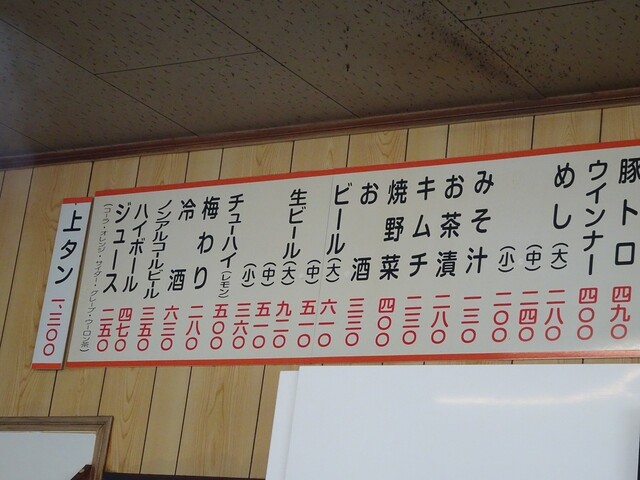 豚トロ 四九〇
ウインナー 四〇〇
めし(大) 二八〇
(中) 二四〇
(小) 二〇〇
みそ汁 一三〇
お茶漬 二八〇
キムチ 二三〇
焼野菜 四〇〇
お酒 三三〇
ビール(大) 六一〇
(中) 五一〇
生ビール(大) 九二〇
(中) 五一〇
(小) 三六〇
チューハイ(レモン) 五〇〇
梅わり 二八〇
冷酒 六三〇
ノンアルコールビール 三五〇
ハイボール 四七〇
ジュース 二五〇
(コーラ・オレンジ・サイダー・グレープ・ウーロン茶)
上タン 一、三〇〇